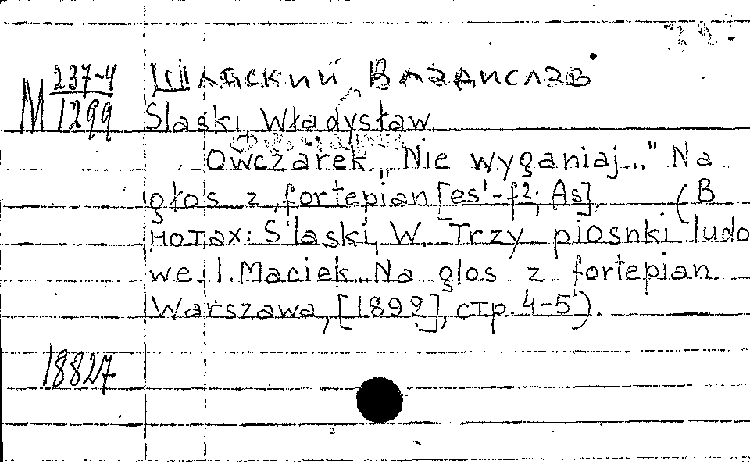 М 237-4/1299
Шлаский Владислав
Slaski Władysław
Owczarek „Nie wyganiaj..." Na
głos z fortepian [es'-f2; As]. (В
нотах: Slaski, W. Trzy piosnki ludo
we. 1. Maciek. Na glos z fortepian.
Warszawa, [1899], стр. 4-5).
18827